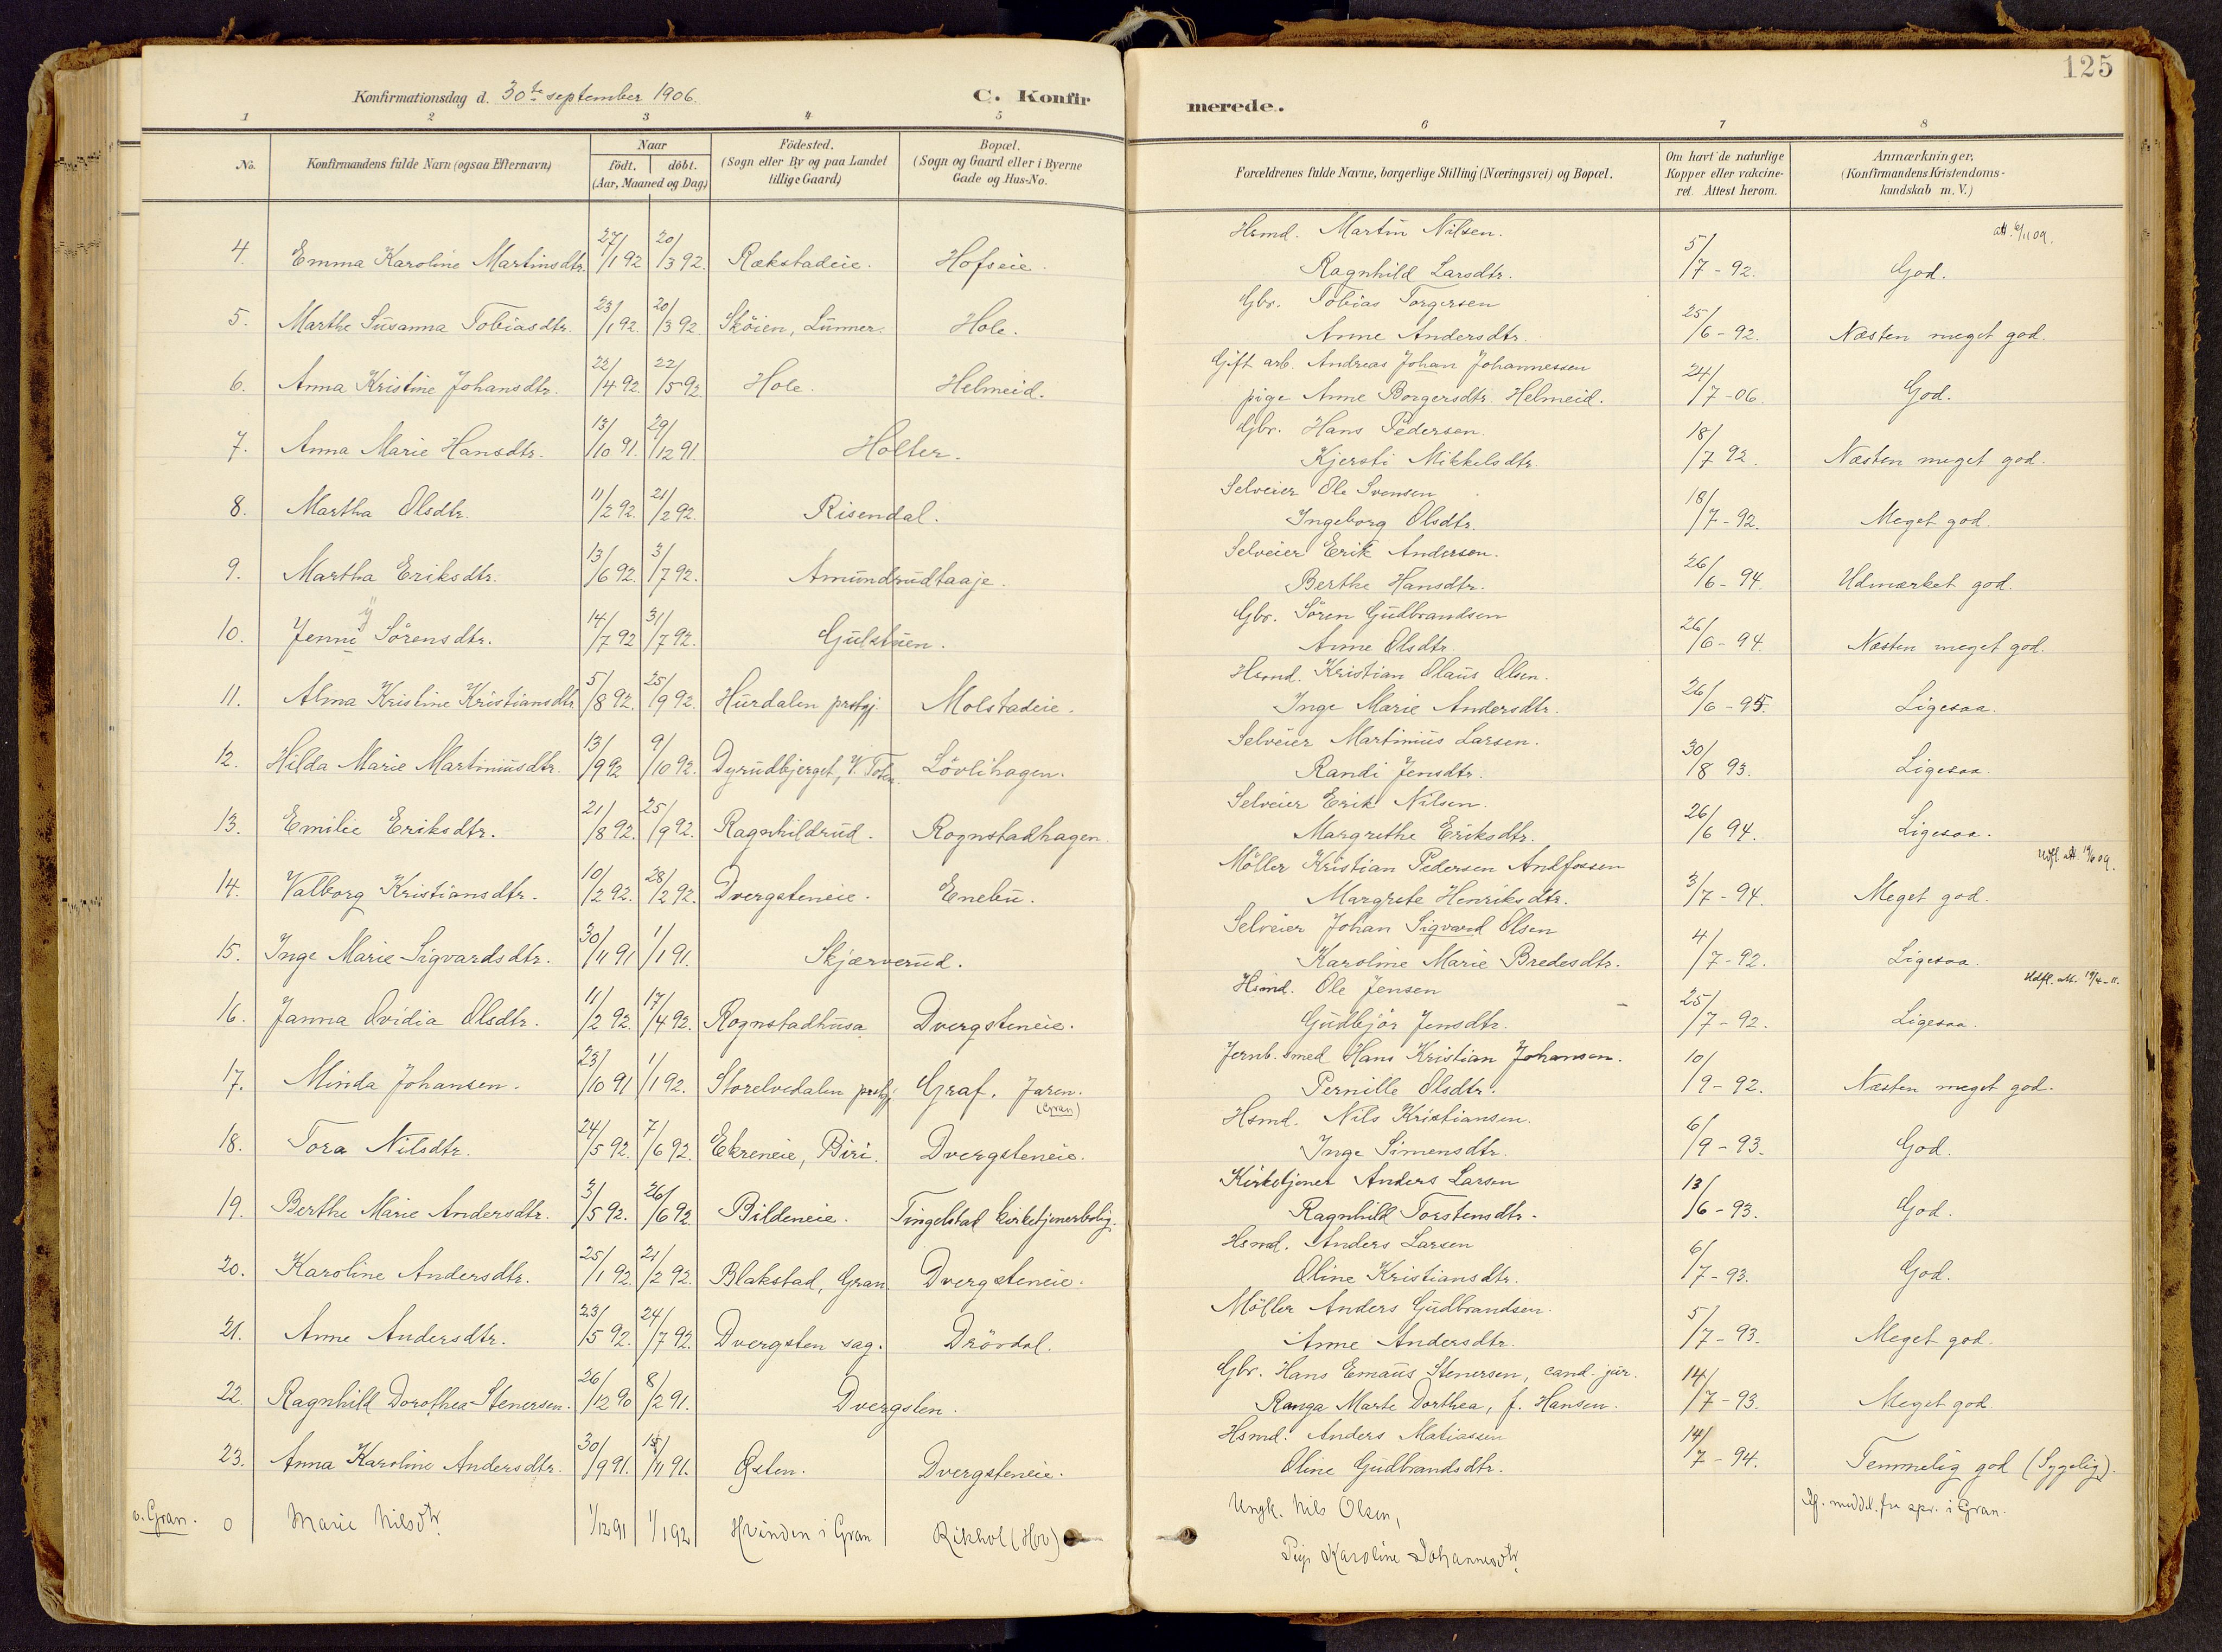 125
Konfirmationsdag d. 30te september 1906.
C. Konfirmerede.
1 2 3 4 5 6 7 8
No. Konfirmandens fulde Navn (ogsaa Efternavn) Naar födt. döbt. (Aar, Maaned og Dag) Födested. (Sogn eller By og paa Landet tillige Gaard) Bopæl. (Sogn og Gaard eller i Byerne Gade og Hus-No. Forældrenes fulde Navne, borgerlige Stilling (Næringsvei) og Bopæl. Om havt de naturlige Kopper eller vakcineret. Attest herom. Anmærkninger, (Konfirmandens Kristendomskundskab m. V.)
4. Emma Karoline Martinsdtr. 27/1 92 20/3 92. Rækstadeie. Hofseie. Hsmd. Martin Nilsen. Ragnhild Larsdtr. 5/7-92. God. att. 6/11 09.
5. Marthe Susanna Tobiasdtr. 23/1 92. 20/3 92. Sköien, Lunner. Hole. Gbr. Tobias Torgersen Anne Andersdtr. 25/6-92. Næsten meget god.
6. Anna Kristine Johansdtr. 22/4 92. 22/5 92. Hole. Helmeid. Gift arb. Andreas Johan Johannessen pige Anne Borgersdtr. Helmeid. 24/7-06. God.
7. Anna Marie Hansdtr. 13/10 91. 29/12 91. Holter. Gbr. Hans Pedersen. Kjersti Mikkelsdtr. 18/7 92. Næsten meget god.
8. Martha Olsdtr. 11/2 92. 21/2 92. Risendal. Selveier Ole Svensen Ingeborg Olsdtr. 18/7-92. Meget god.
9. Martha Eriksdtr. 13/6 92. 3/7 92. Amundrudtaaje. Selveier Erik Andersen. Berthe Hansdtr. 26/6-94. Udmærket god.
10. Jenni Sörensdtr. 14/7 92 31/7 92. Gulstuen. Gbr. Sören Gudbrandsen Anne Olsdtr. 26/6-94. Næsten meget god.
11. Alma Kristine Kristiansdtr. 5/8 92. 25/9 92. Hurdalen prstgj. Molstadeie. Hsmd. Kristian Olaus Olsen. Inge Marie Andersdtr. 26/6-95. Ligesaa.
12. Hilda Marie Martiniusdtr. 13/9 92 9/10 92. Dyrudbjerget, V. Toten Lövlihagen. Selveier Martinius Larsen. Randi Jensdtr. 30/8 93. Ligesaa.
13. Emilie Eriksdtr. 21/8 92. 25/9 92. Ragnhildrud. Rognstadhagen. Selveier Erik Nilsen. Margrethe Eriksdtr. 26/6 94. Ligesaa.
14. Valborg Kristiansdtr. 10/2 92. 28/2 92. Dvergsteneie. Enebu. Möller Kristian Pedersen Andfossen Margrete Henriksdtr. 3/7-94. Meget god.
15. Inge Marie Sigvardsdtr. 30/11 91 1/1 91. Skjærverud. Selveier Johan Sigvard Olsen Karoline Marie Bredesdtr. 4/7-92. Ligesaa.
16. Janna Ovidia Olsdtr. 11/2 92. 17/4 92. Rognstadhusa Dvergsteneie. Hsmd. Ole Jensen Gudbjör Jensdtr. 25/7-92. Ligesaa.
17. Minda Johansen. 23/10 91 1/1 92. Storelvedalen prstgj. Graf. Jaren. (Gran) Jernb. smed Hans Kristian Johansen. Pernille Olsdtr. 10/9-92. Næsten meget god.
18. Tora Nilsdtr. 24/5 92. 7/6 92. Ekreneie, Biri. Dvergsteneie. Hsmd. Nils Kristiansen. Inge Simensdtr. 6/9-93. God.
19. Berthe Marie Andersdtr. 3/5 92. 26/6 92 Bildeneie. Tingelstad kirketjenerbolig. Kirketjener Anders Larsen Ragnhild Torstensdtr. 13/6-93. God.
20. Karoline Andersdtr. 25/1 92 21/2 92. Blakstad, Gran Dvergsteneie. Hsmd. Anders Larsen Oline Kristiansdtr. 6/7-93. God.
21. Anne Andersdtr. 23/5 92. 24/7 92. Dvergsten sag. Drövdal. Möller Anders Gudbrandsen. Anne Andersdtr. 5/7-93. Meget god.
22. Ragnhild Dorothea Stenersen. 26/12 90 8/2 91. Dvergsten. Gbr. Hans Emaus Stenersen, cand. jur. Ranga Marte Dorthea, f. Hansen. 14/7-93. Meget god.
23. Anna Karoline Andersdtr. 30/9 91. 15/11 91. Østen. Dvergsteneie. Hsmd. Anders Matiassen Oline Gudbrandsdtr. 14/7-94. Temmelig god (Sygelig).
v. Gran. 0 Marie Nilsdtr. 1/12 91 1/1 92 Hvinden i Gran Rikhol (Hov) Ungk. Nils Olsen, Pige Karoline Johannesdtr. If. meddel. fra spr. i Gran.